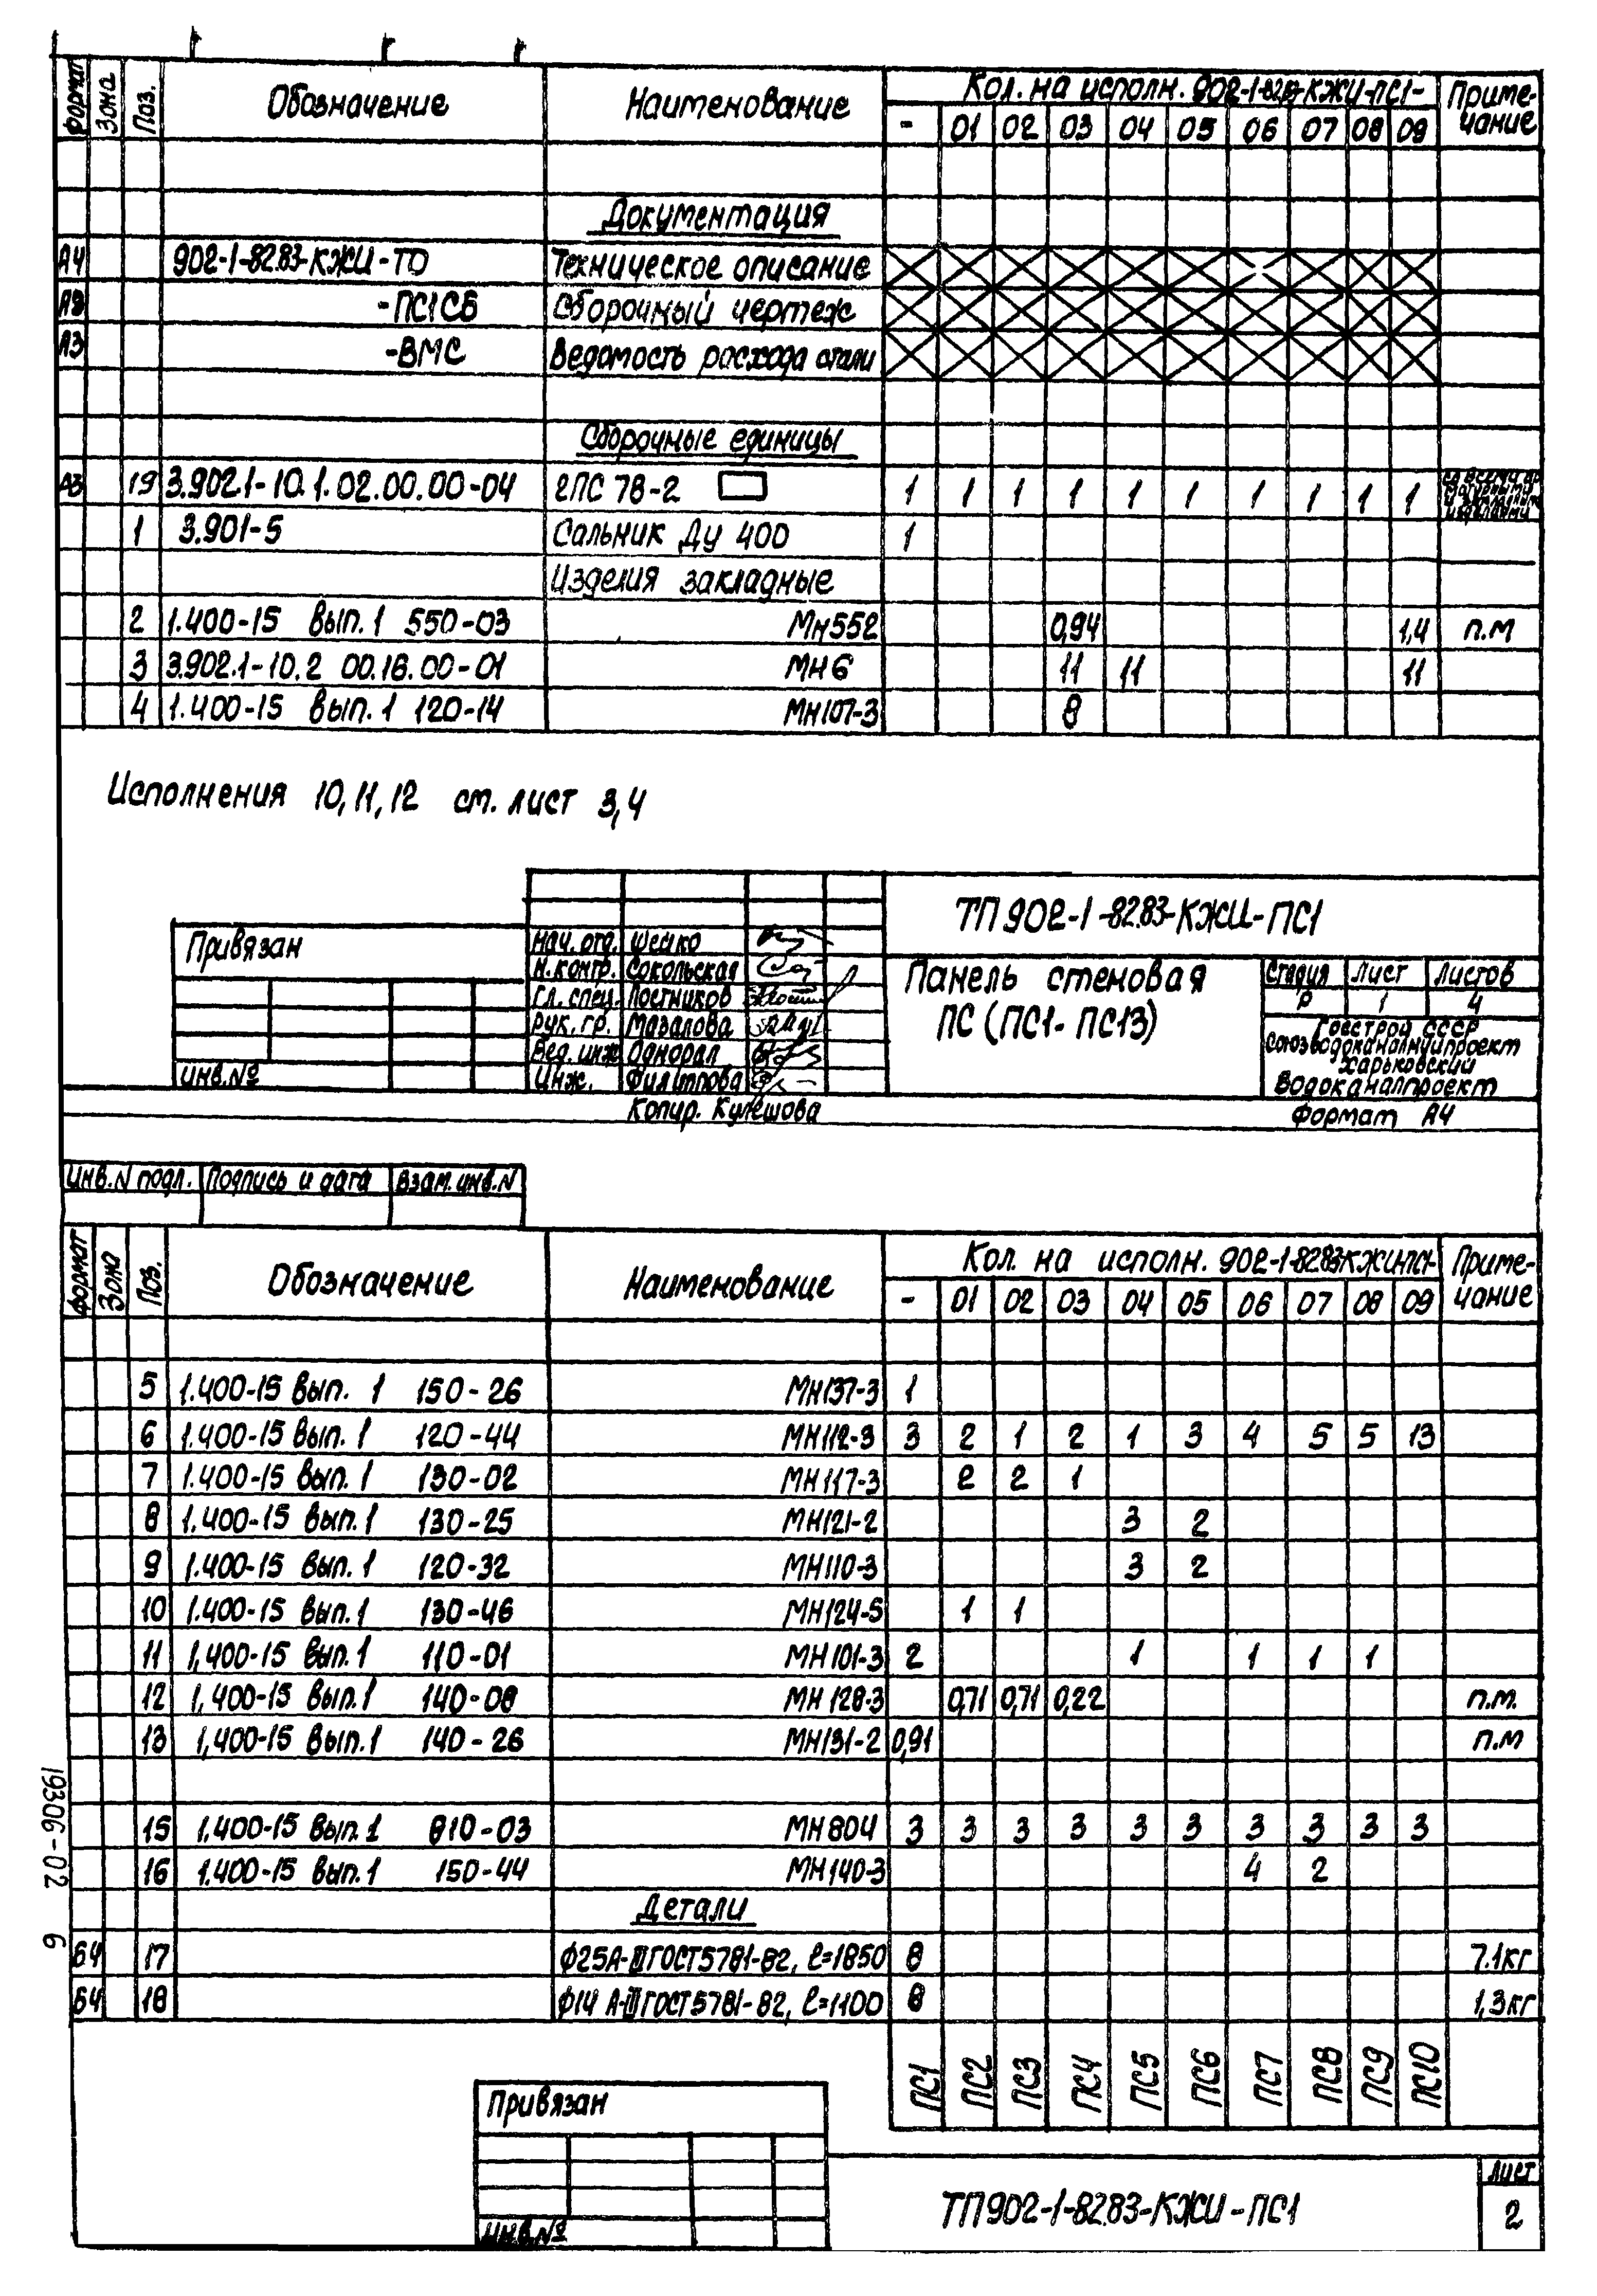 формат Зона Поз. Обозначение Наименование Кол. на исполн. 902-1-82.83-КЖИ-ПС1- Приме-
- 01 02 03 04 05 06 07 08 09 чание
Документация
А4 902-1-82.83-КЖИ-ТО Техническое описание
-ПС1СБ Сборочный чертеж
А3 -ВМС Ведомость расхода стали
Сборочные единицы
А3 19 3.902.1-10.1.02.00.00-04 2ПС 78-2 1 1 1 1 1 1 1 1 1 1
изделиями
1 3.901-5 Сальник Ду 400 1
Изделия закладные
2 1.400-15 вып. 1 550-03 МН552 0,94 1,4 п.м
3 3.902.1-10.2 00.16.00-01 МН6 11 11 11
4 1.400-15 вып. 1 120-14 МН107-3 8
Исполнения 10, 11, 12 см. лист 3,4
ТП902-1-82.83-КЖИ-ПС1
Привязан
Нач. отд. Шейко
Н.контр. Сокольская
Гл. спец. Постников
Рук. гр. Мазалова
Вед. инж Однорал
Инж. Филиппова
инв.№
Панель стеновая
ПС (ПС1-ПС13)
Стадия Лист Листов
Р 1 4
Госстрой СССР
Союзводоканалниипроект
Харьковский
Водоканалпроект
Копир. Кулешова Формат А4
Инв.N подл. Подпись и дата Взам.инв.N
формат Зона Поз. Обозначение Наименование Кол. на исполн. 902-1-82.83КЖИПС1- Приме-
- 01 02 03 04 05 06 07 08 09 чание
5 1.400-15 вып. 1 150-26 МН137-3 1
6 1.400-15 вып. 1 120-44 МН112-3 3 2 1 2 1 3 4 5 5 13
7 1.400-15 вып. 1 130-02 МН117-3 2 2 1
8 1.400-15 вып. 1 130-25 МН121-2 3 2
9 1.400-15 вып. 1 120-32 МН110-3 3 2
10 1.400-15 вып. 1 130-46 МН124-5 1 1
11 1,400-15 вып. 1 110-01 МН101-3 2 1 1 1 1
12 1,400-15 вып. 1 140-08 МН128-3 0,71 0,71 0,22 п.м.
13 1,400-15 вып. 1 140-26 МН131-2 0,91 п.м
15 1,400-15 вып. 1 810-03 МН804 3 3 3 3 3 3 3 3 3 3
16 1.400-15 вып. 1 150-44 МН140-3 4 2
Детали
Б4 17 Ф25А-III ГОСТ5781-82, ℓ=1850 8 7.1кг
Б4 18 Ф14 А-III ГОСТ5781-82, ℓ=1100 8 1,3кг
ПС1 ПС2 ПС3 ПС4 ПС5 ПС6 ПС7 ПС8 ПС9 ПС10
Привязан
инв.№
ТП902-1-82.83-КЖИ-ПС1
Лист
2
19306-02 6